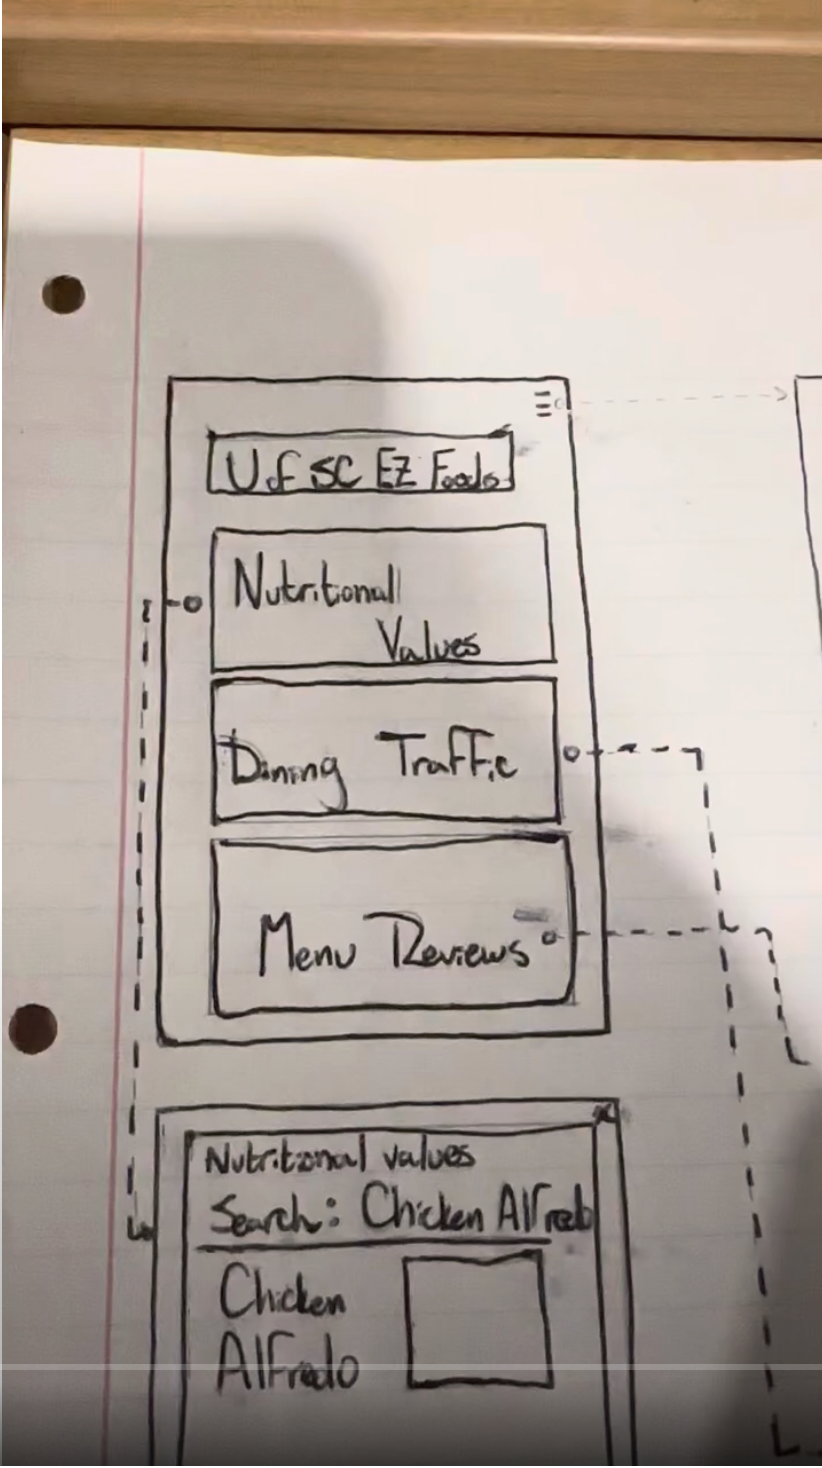 UofSC EZ Foods
Nutritional
Values
Dining Traffic
Menu Reviews
Nutritional values
Search: Chicken Alfredo
Chicken
Alfredo